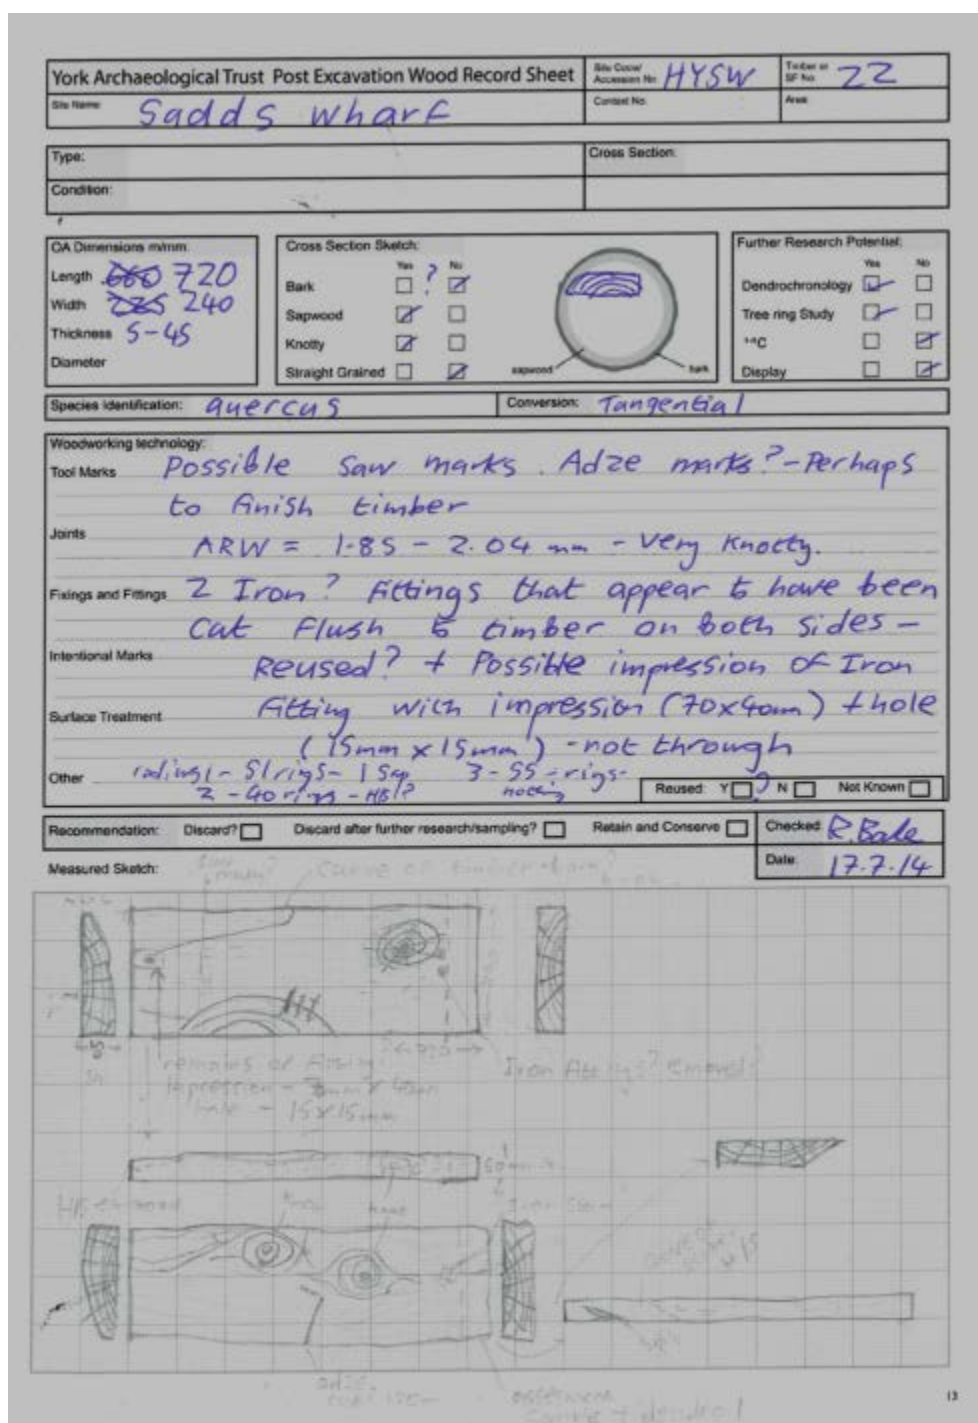 York Archaeological Trust Post Excavation Wood Record Sheet
Site Code/ Accession No HYSW
Timber or SF No. 22
Site Name: Sadds wharf
Context No.
Area:
Type:
Cross Section:
Condition:
OA Dimensions m/mm.
Length 660 720
Width 225 240
Thickness 5-45
Diameter
Cross Section Sketch:
Yes No
Bark ?
Sapwood
Knotty
Straight Grained
sapwood bark
Further Research Potential:
Yes No
Dendrochronology
Tree ring Study
14C
Display
Species Identification: quercus
Conversion: Tangential
Woodworking technology:
Tool Marks Possible Saw marks. Adze marks? - Perhaps
to finish timber
Joints
ARW = 1.85 - 2.04 mm - very knotty.
Fixings and Fittings 2 Iron? Fittings that appear to have been
Cut Flush to timber on both sides -
Intentional Marks Reused? + Possible impression of Iron
Surface Treatment Fitting with impression (70x40mm) + hole
(15mm x 15mm) - not through
Other 51 rigs - 1 Sap 3 - 55 - rigs -
2 - 40 rigs - HB/?
Reused: Y ? N Not Known
Recommendation: Discard? Discard after further research/sampling? Retain and Conserve
Checked: R. Bale
Date: 17.7.14
Measured Sketch:
curve of timber
remains of fitting
Impression - 40mm
hole - 15x15mm
Iron fittings? removed?
knot
adze
13